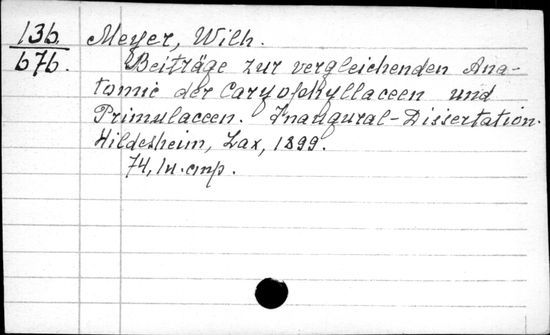 136. Meyer, Wilh.
676. Beiträge zur vergleichenden Ana-
tomie der Caryophyllaceen und
Primulaceen. Inaugural-Dissertation.
Hildesheim, Lax, 1899.
74, 1н. стр.